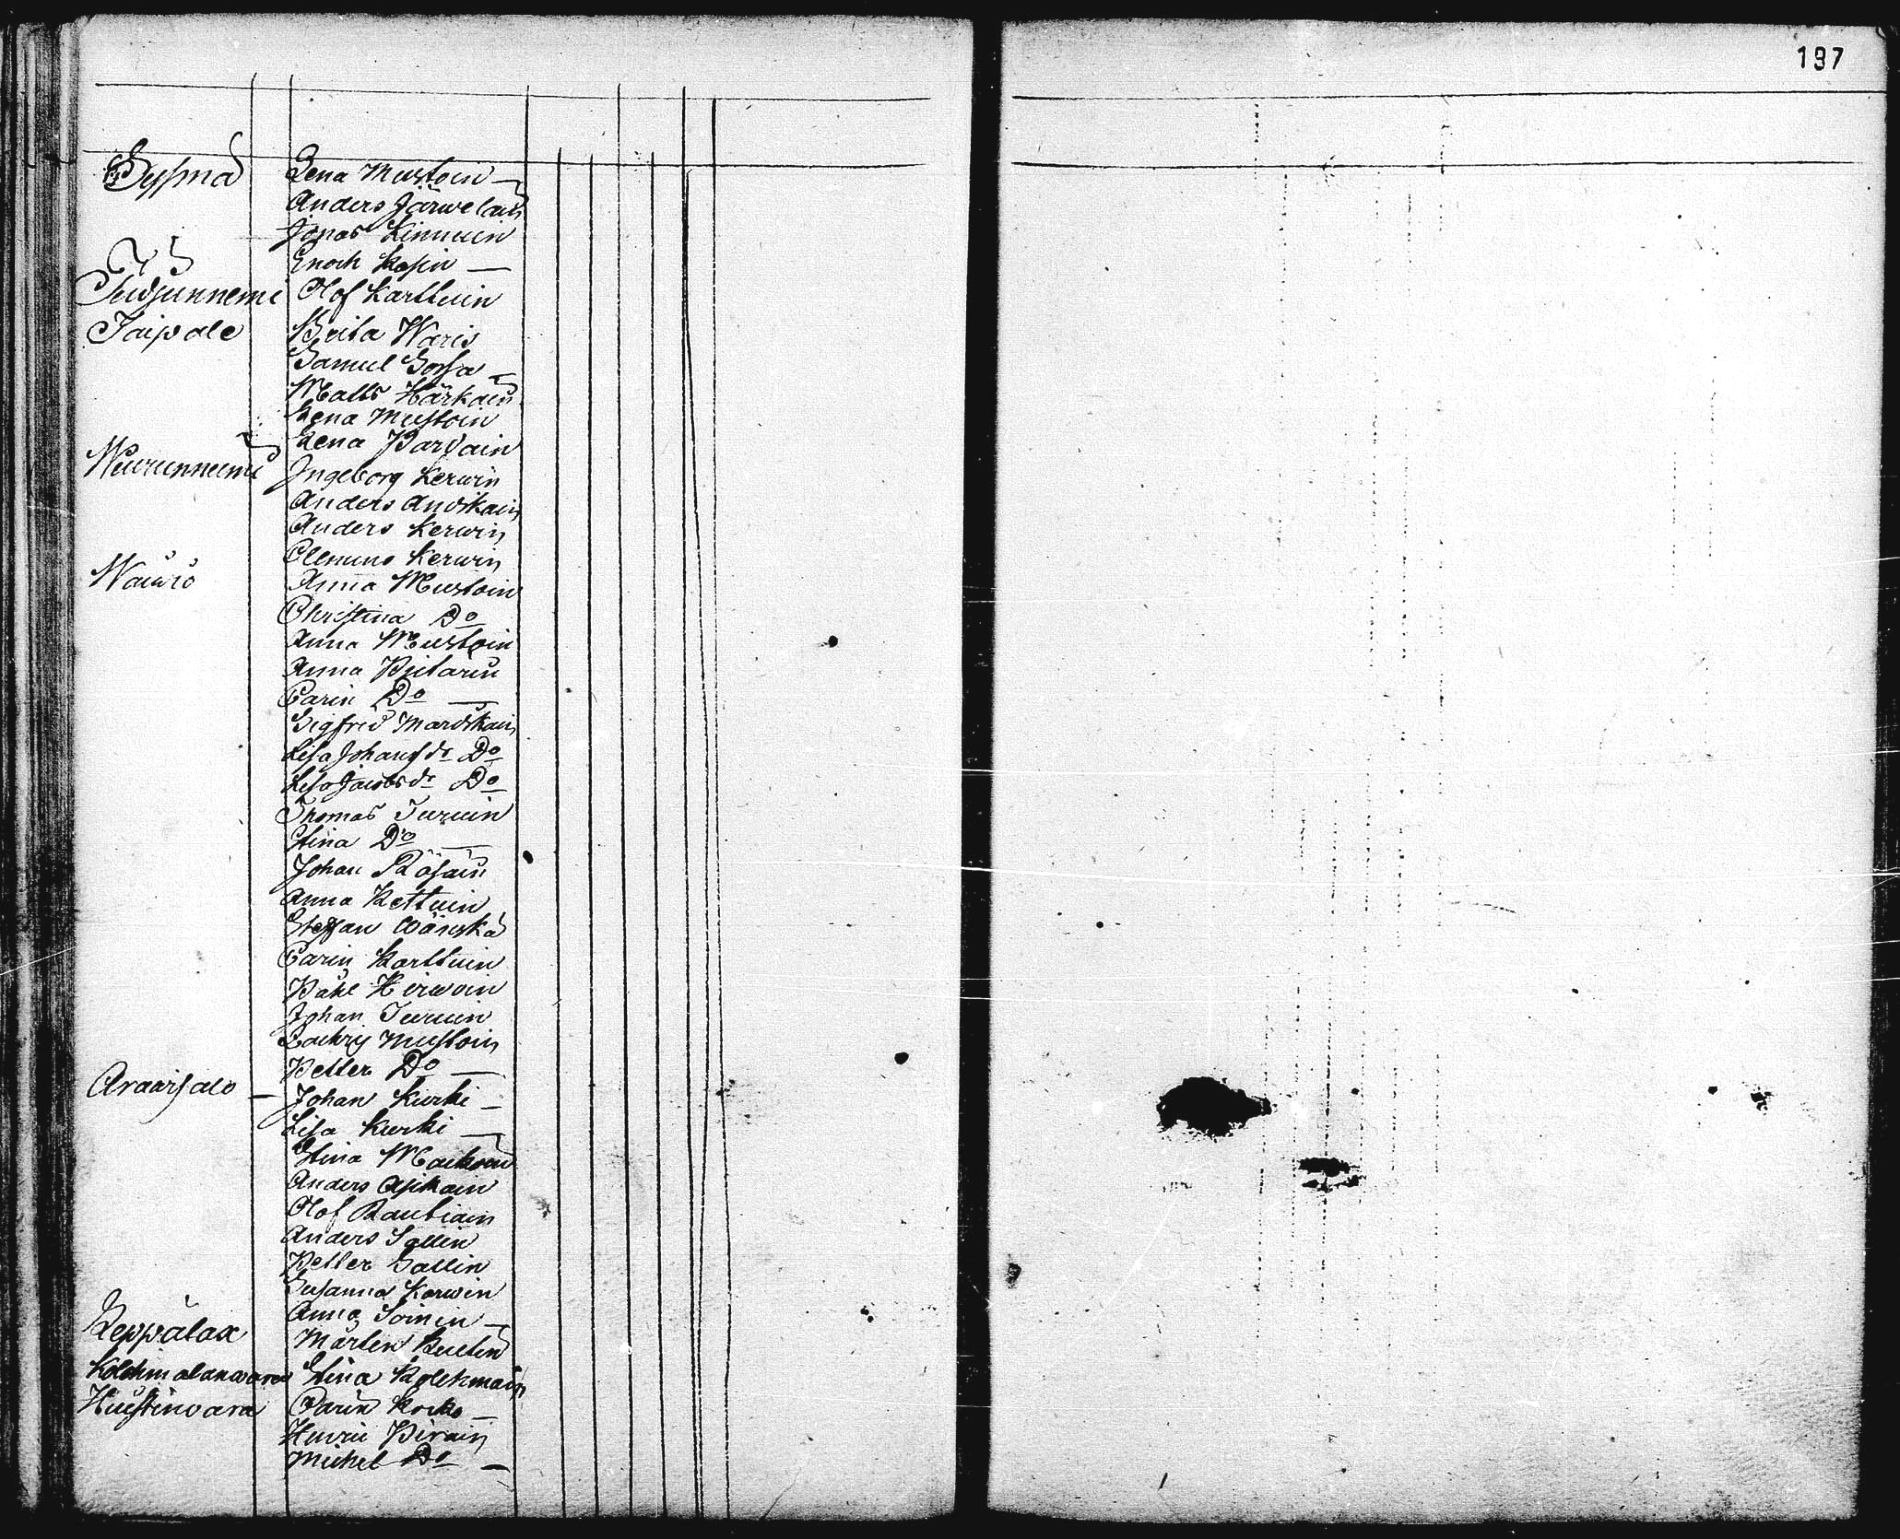 197
Sysmä Lena Mustoin
Anders Järwelain
Jonas Kinnuin
Enoch Kosin
Olof Karttuin
Taipale Brita Waris
Samuel Sorsa
Matts Härkäin
Lena Mustoin
Lena Pardain
Wuorinniemi Ingeborg Kerwin
Anders Andskain
Anders Kerwin
Clemens Kerwin
Wauro Anna Mustoin
Christina Do
Anna Mustoin
Anna Pietarin
Carin Do
Sigfrid Mardskain
Lisa Johansdr Do
Lisa Jacobsdr Do
Thomas Turuin
Stina Do
Johan Räsäin
Anna Kettuin
Steffan Wänskä
Carin Karttuin
Påhl Hirwoin
Johan Turuin
Zachris Mustoin
Petter Do
Araarisalo Johan Kurki
Lisa Kurki
Stina
Anders Asikain
Olof Rautiain
Anders Sallin
Petter Sallin
Susanna Karwin
Anna Soinin
Leppälax Mårten
Kolehmalanwara Stina Kolehmain
Huistinwara Carin Kocko
Henric Pirain
Michel Do